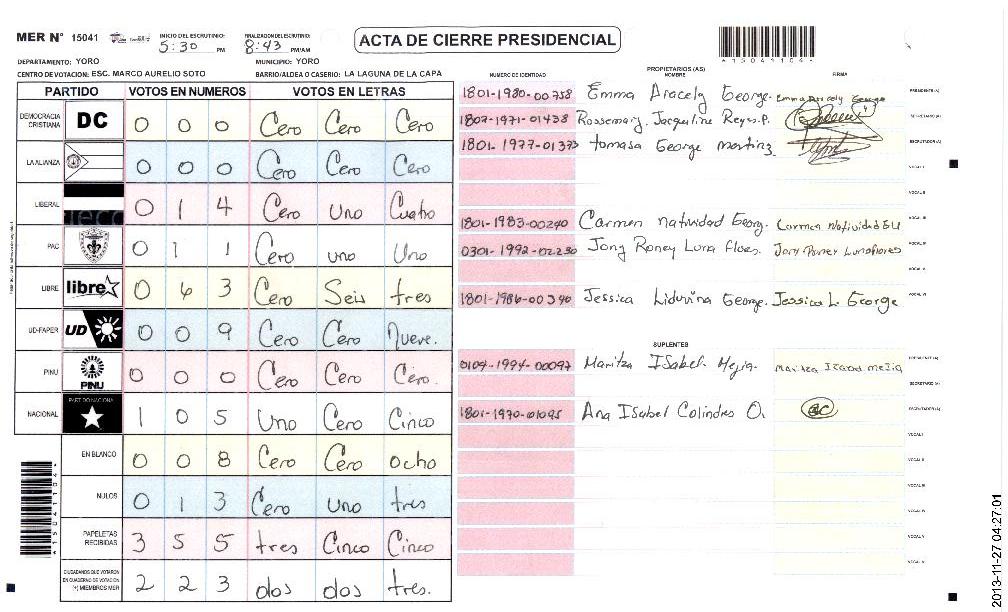 MER N° 15041 INICIO DEL ESCRUTINIO: 5:30 PM FINALIZACION ESCRUTINIO: 8:43 PM/AM
ACTA DE CIERRE PRESIDENCIAL
DEPARTAMENTO: YORO MUNICIPIO: YORO
CENTRO DE VOTACION: ESC. MARCO AURELIO SOTO BARRIO/ALDEA O CASERIO: LA LAGUNA DE LA CAPA
PARTIDO VOTOS EN NUMEROS VOTOS EN LETRAS
DEMOCRACIA CRISTIANA DC 0 0 0 Cero Cero Cero
LA ALIANZA 0 0 0 Cero Cero Cero
LIBERAL 0 1 4 Cero Uno Cuatro
PAC 0 1 1 Cero uno Uno
LIBRE libre 0 6 3 Cero Seis tres
UD-FAPER UD 0 0 9 Cero Cero Nueve.
PINU PINU 0 0 0 Cero Cero Cero.
NACIONAL PARTIDO NACIONAL 1 0 5 Uno Cero Cinco
EN BLANCO 0 0 8 Cero Cero ocho
NULOS 0 1 3 Cero uno tres
PAPELETAS RECIBIDAS 3 5 5 tres Cinco Cinco
CIUDADANOS QUE VOTARON EN CUADERNO DE VOTACION (+) MIEMBROS MER 2 2 3 dos dos tres.
PROPIETARIOS (AS)
NUMERO DE IDENTIDAD NOMBRE FIRMA
1801-1980-00758 Emma Aracely George. Emma Aracely George PRESIDENTE (A)
1807-1971-01438 Rossemary Jacqueline Reyes.P. SECRETARIO (A)
1801-1977-01373 tomasa George martinz ESCRUTADOR (A)
VOCAL I
VOCAL II
1801-1983-00240 Carmen natividad Georg. Carmen Natividad VOCAL III
0301-1992-02230 Jony Roney Luna flores. Jony Roney Lunaflores VOCAL IV
VOCAL V
1801-1986-00340 Jessica Liduvina George. Jessica L. George VOCAL VI
SUPLENTES
0107-1994-00097 Maritza ISabel Mejia. Maritza Isabel mejia PRESIDENTE (A)
SECRETARIO (A)
1801-1970-01095 Ana Isabel Colindres O. ESCRUTADOR (A)
VOCAL I
VOCAL II
VOCAL III
VOCAL IV
VOCAL V
VOCAL VI
2013-11-27 04:27:01